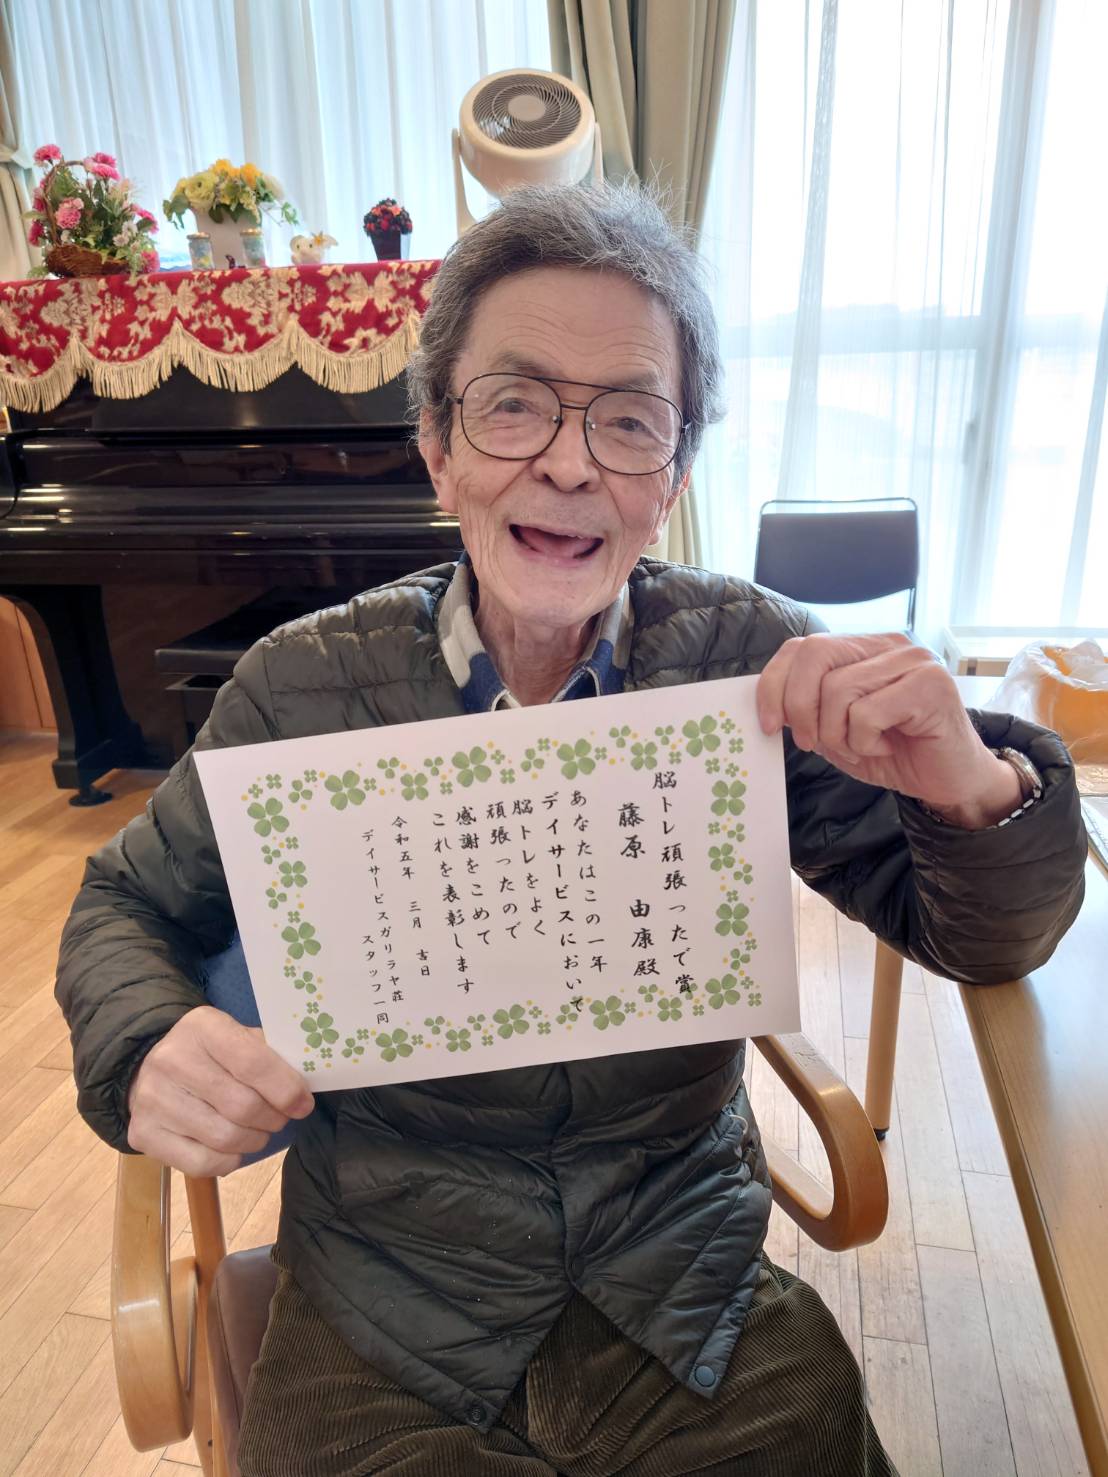 脳トレ頑張ったで賞
藤原 由康殿
あなたはこの一年
デイサービスにおいて
脳トレをよく
頑張ったので
感謝をこめて
これを表彰します
令和五年 三月 吉日
デイサービスガリラヤ荘
スタッフ一同